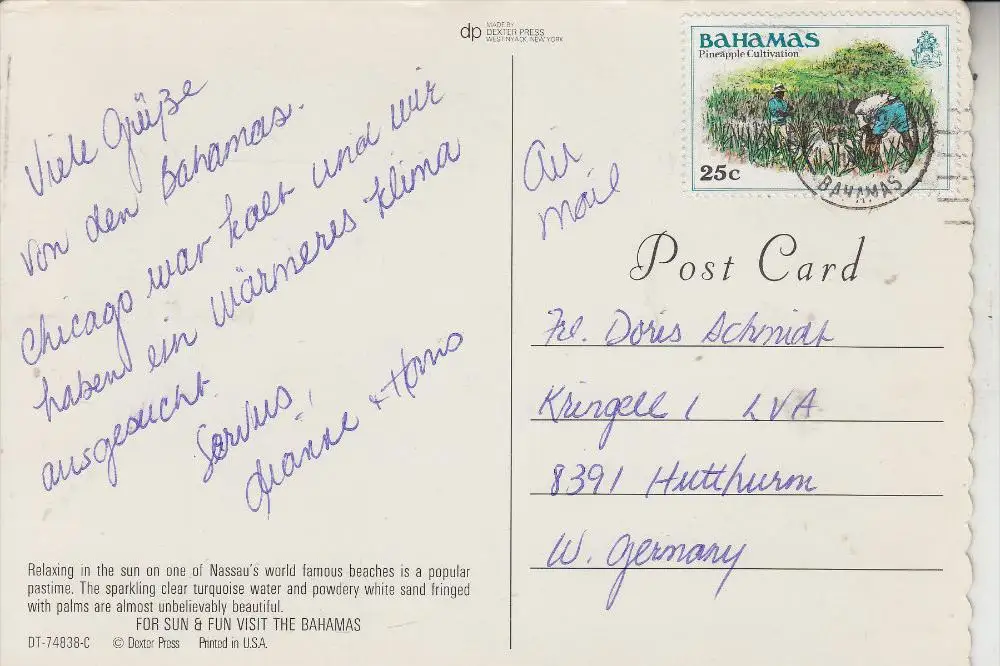 dp MADE BY
DEXTER PRESS
WEST NYACK, NEW YORK
BAHAMAS
Pineapple Cultivation
25c
BAHAMAS
Viele Grüße
von den Bahamas.
Chicago war kalt und wir
haben ein wärmeres Klima
ausgesucht.
Servus,
Dianne + Hans
Air
Mail
Post Card
Frl. Doris Schmidt
Kringell 1 LVA
8391 Hutthurm
W. Germany
Relaxing in the sun on one of Nassau's world famous beaches is a popular
pastime. The sparkling clear turquoise water and powdery white sand fringed
with palms are almost unbelievably beautiful.
FOR SUN & FUN VISIT THE BAHAMAS
DT-74838-C © Dexter Press Printed in U.S.A.